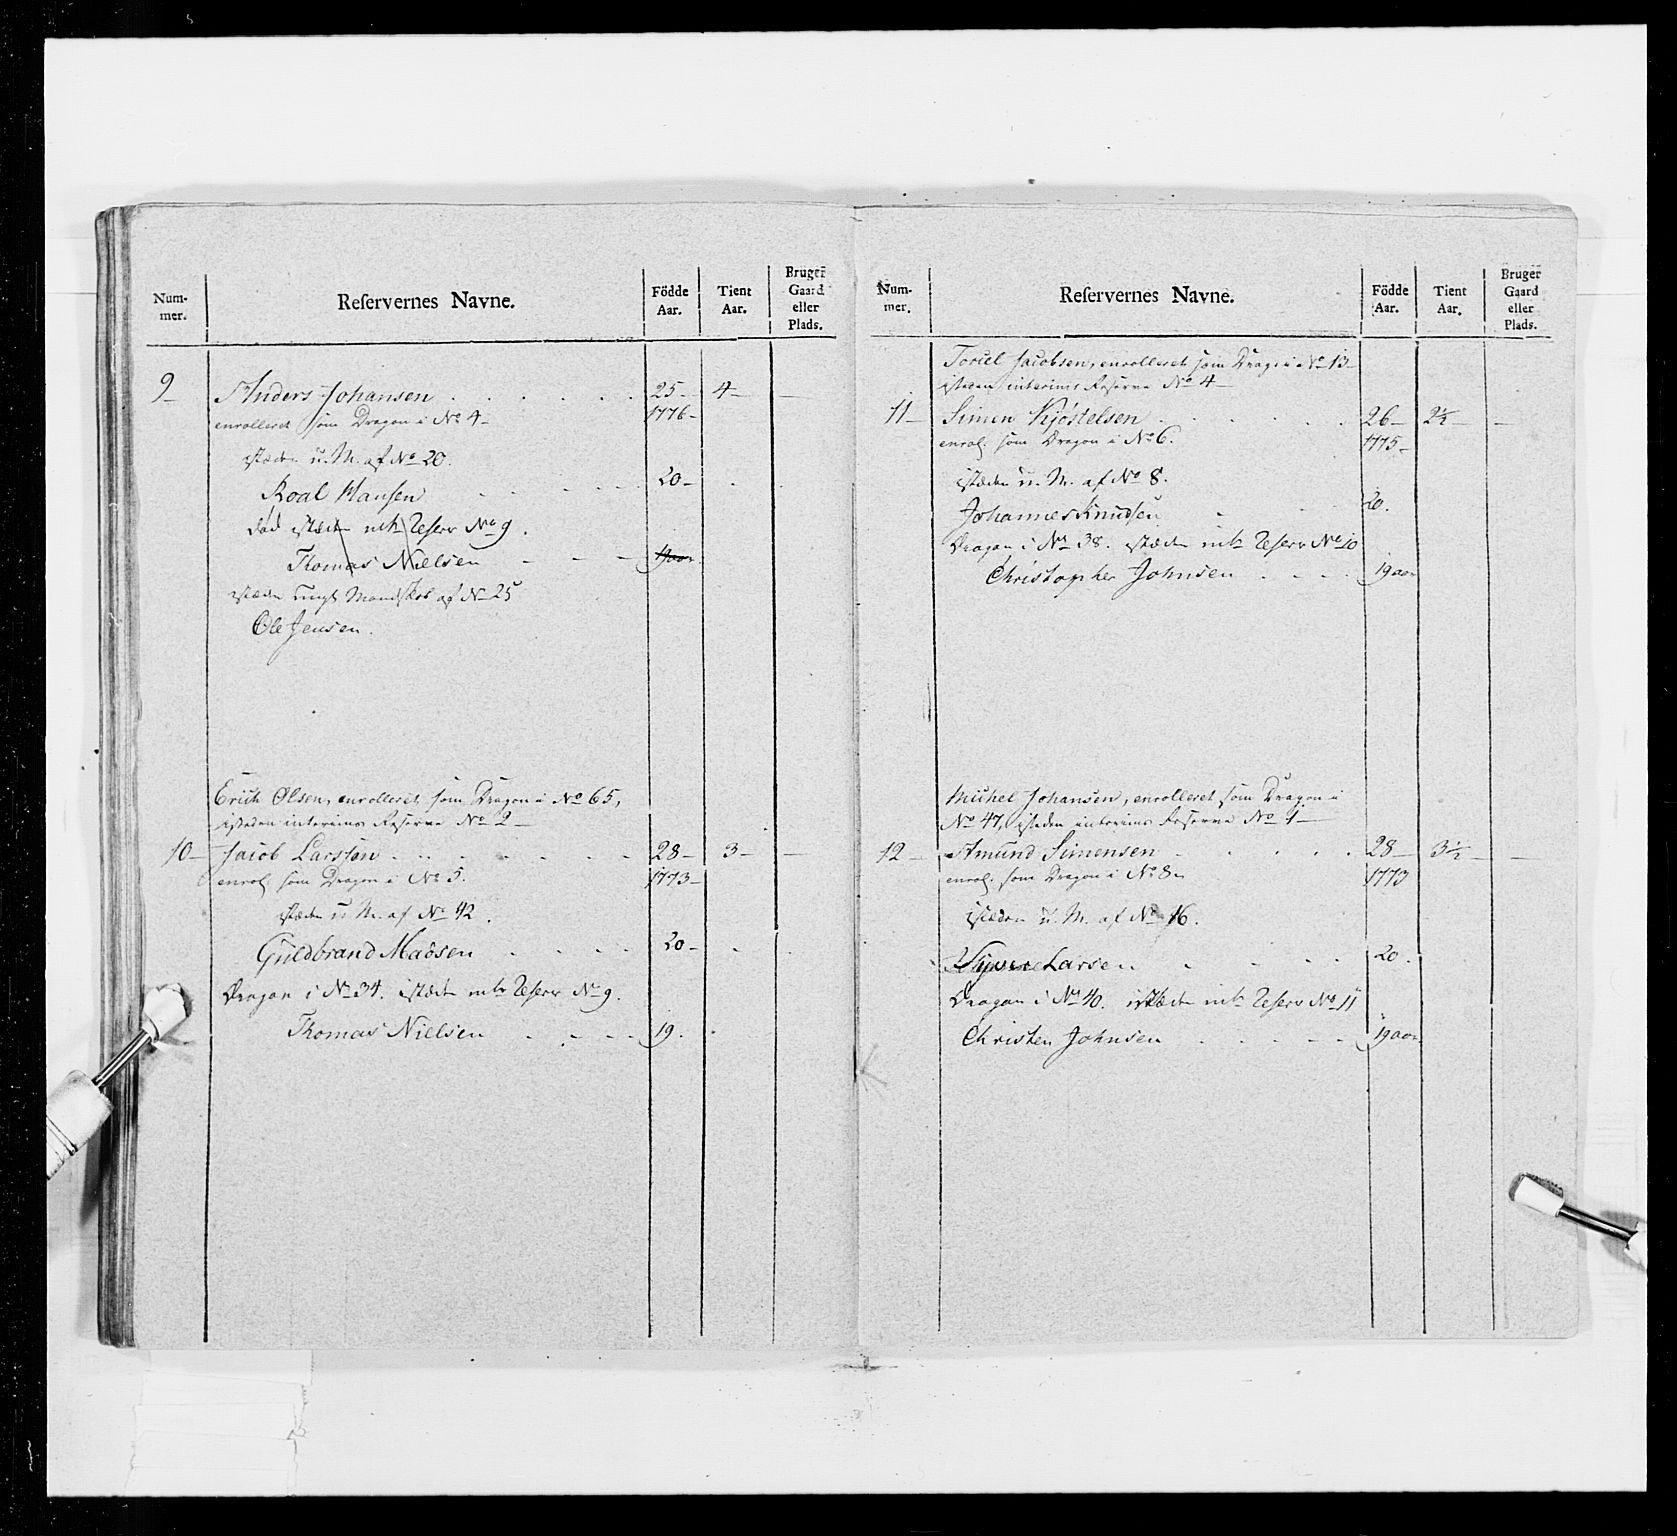 Num-
mer.
Reservernes Navne.
Födde
Aar.
Tient
Aar.
Bruger
Gaard
eller
Plads.
9- Anders Johansen . . . . . 25- 4- -
enrolleret som Dragon i No 4- 1776-
isteden u. M. af No 20.
Roal Hansen . . . . . 20- .
død isteden Reserv No 9.
Thomas Nielsen - - - 19 aar
isteden ungt Mandskab af No 25
Ole Jensen.
Erich Olsen, enrolleret som Dragon i No 65,
isteden interims Reserve No 2-
10- Jacob Larsen . . . . . 28- 3- -
enrol. som Dragon i No 5. 1773-
isteden u. M. af No 42.
Guldbrand Madsen . . . . 20- .
Dragon i No 34. isteden Reserv No 9.
Thomas Nielsen - - - - 19. .
Num-
mer.
Reservernes Navne.
Födde
Aar.
Tient
Aar.
Bruger
Gaard
eller
Plads.
Toriel Jacobsen, enrolleret som Dragon i No 13-
isteden interims Reserve No 4-
11- Simen Kjöstelsen . . . . 26- 2½- -
enrol. som Dragon i No 6. 1775-
isteden u. M. af No 8.
Johannes Knudsen . . . 20.
Dragon i No 38. isteden Reserv No 10
Christopher Johnsen . . . . 19 aar
Michel Johansen, enrolleret som Dragon i
No 47, isteden interims Reserve No 1-
12- Amund Simensen . . . . 28- 3½- -
enrol. som Dragon i No 8- 1773
isteden u. M. af No 16.
Larsen . . . . 20.
Dragon i No 40. isteden Reserv No 11
Christen Johnsen . . . - - 19 aar